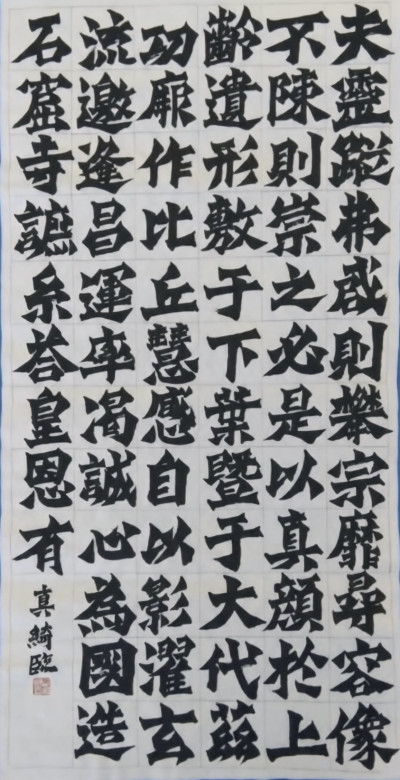 夫靈蹤弗咸則攀宗靡尋容像
不陳則崇之必是以真顔於上
齡遺形敷于下葉暨于大代茲
功厥作比丘慧感自以影濯玄
流邀逢昌運率渴誠心為國造
石窟寺系荅皇恩有
真綺臨